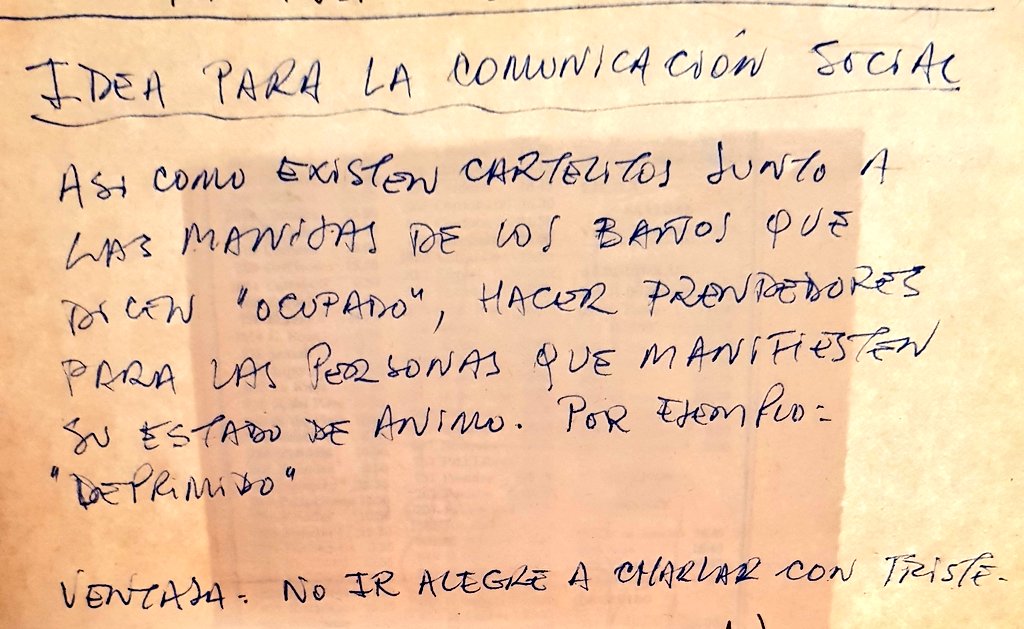 IDEA PARA LA COMUNICACIÓN SOCIAL
ASI COMO EXISTEN CARTELITOS JUNTO A
LAS MANIJAS DE LOS BAÑOS QUE
DICEN "OCUPADO", HACER PRENDEDORES
PARA LAS PERSONAS QUE MANIFIESTEN
SU ESTADO DE ANIMO. POR EJEMPLO:
"DEPRIMIDO"
VENTAJA: NO IR ALEGRE A CHARLAR CON TRISTE.